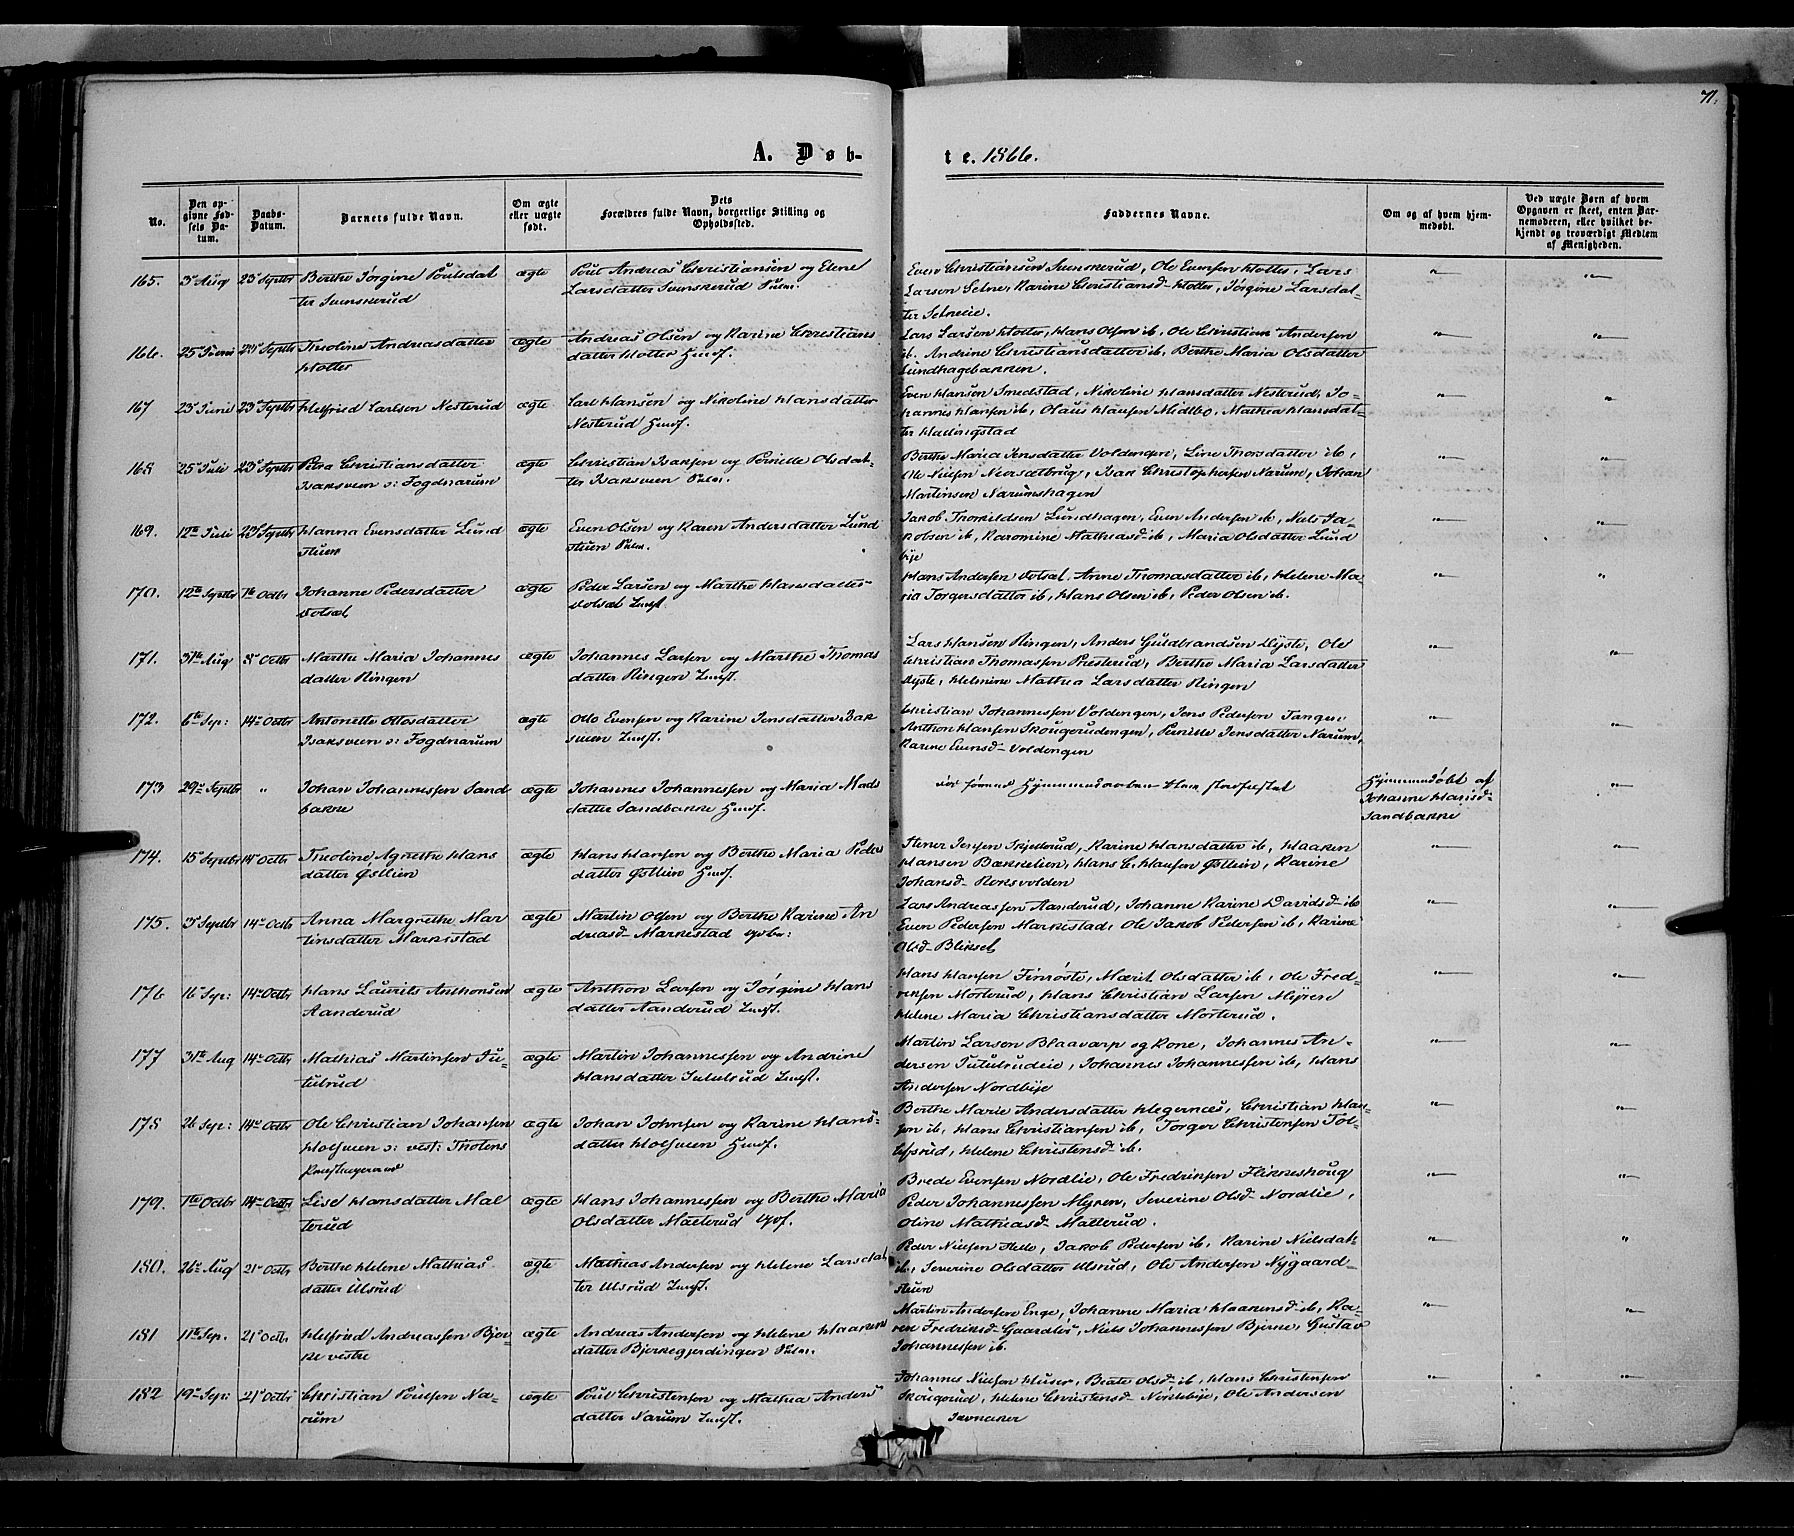 71.
A. Døb-
te. 1866.
No.
Den op-
givne Fød-
sels Da-
tum.
Daabs-
Datum.
Barnets fulde Navn.
Om ægte
eller uægte
født.
Dets
Forældres fulde Navn, borgerlige Stilling og
Opholdssted.
Faddernes Navne.
Om og af hvem hjem-
medøbt.
Ved uægte Børn af hvem
Opgaven er skeet, enten Bar-
nemoderen, eller hvilket be-
kjendt og troværdigt Medlem
af Menigheden.
165. 3 Aug 23 Septbr Berthe Jørgine Poulsdat
ter Svenskerud
ægte
Poul Andreas Christiansen og Elene
Larsdatter Svenskerud
Even Christiansen Svenskerud, Ole Evensen Holter, Lars
Larsen Selne, Karine Christiansd. Holter, Jørgine Larsdat-
ter Selneeie.
166. 25 Juni 23 Septbr Trioline Andreasdatter
Holter
ægte
Andreas Olsen og Karine Christians
datter Holter Huusf.
Lars Larsen Holter, Hans Olsen ib, Ole Christian Andersen
ib. Andrine Christiansdatter ib, Berthe Maria Olsdatter
Lundhagebakken.
167 23 Juni 23 Septbr Helfried Carlsen Nesterud
ægte
Carl Hansen og Nikoline Hansdatter
Nesterud Huusf.
Even Hansen Smedstad, Nikoline Hansdatter Nesterud, Jo-
hannes Hansen ib, Olaus Hansen Midtbø, Mathea Hansdat-
ter Hadingstad
168 25 Juli 23 Septbr Petra Christiansdatter
Isaksveen o: Fogdnarum
ægte
Christian Isaksen og Pernille Olsdat-
ter Isaksveen
Berthe Maria Jensdatter Voldengen, Line Thorsdatter ib,
Ole Nielsen Neersætbrug, Isak Christophersen Narum, Johan
Martinsen Narumshagen
169. 12te Juli 23 Septbr Hanna Evensdatter Lund
stuen
ægte
Even Olsen og Karen Andersdatter Lund
stuen
Jakob Thorkildsen Lundhagen, Even Andersen ib, Niels Ja-
kobsen ib, Karomine Mathiasd. ib, Maria Olsdatter Lund
bye
170. 12te Septbr 7te Octbr Johanne Pedersdatter
Volsæt
ægte
Peder Larsen og Marthe Hansdatter
Volsæt Inust.
Hans Andersen Volsæt, Anne Thomasdatter ib, Helene Ma-
ria Torgersdatter ib, Hans Olsen ib, Peder Olsen ib.
171. 31te Aug 8 Octbr Marthe Maria Johannes
datter Ringen
ægte
Johannes Larsen og Marthe Thomas
datter Ringen Inust.
Lars Hansen Ringen, Anders Guldbrandsen Dyste, Ole
Christian Thomassen Presterud, Berthe Maria Larsdatter
Dyste, Helmine Mathea Larsdatter Ringen
172. 6te Sep: 14 Octbr Antonette Ottosdatter
Isaksveen o: Fogdnarum
ægte
Otto Evensen og Karine Jensdatter Isak
sveen Inust.
Christian Johannessen Voldengen, Jens Pedersen Tangen
Anthon Hansen Skougerudengen, Pernille Jensdatter Narum,
Karine Evensd. Voldengen
173 29 Septbr " Johan Johannessen Sand
bakke
ægte
Johannes Johannessen og Maria Mads
datter Sandbakke Huusf.
Hjemmedøbt af
Johanne Hansd.
Sandbakke
174. 15 Septbr 14 Octbr Trioline Agnethe Hans
datter Østlien
ægte
Hans Hansen og Berthe Maria Peder
datter Østlien Huusf.
Stener Jensen Skjellerud, Karine Hansdatter ib, Haaken
Hansen Bækkelien, Hans C. Hansen Østlien, Karine
Johansd. Roksvolden
175. 3 Septbr 14 Octbr Anna Margrethe Mar
tinsdatter Markestad
ægte
Martin Olsen og Berthe Karine An
dreasd. Markestad
Lars Andreassen Aanderud, Johanne Karine Davidsd. ib
Even Pedersen Markestad, Ole Jakob Pedersen ib, Karine
Olsd. Blikset
176 16 Sep: 14 Octbr Hans Laurits Anthonsen
Aanderud
ægte
Anthon Larsen og Jørgine Hans
datter Aanderud Inust.
Hans Hansen Finrøste, Marit Olsdatter ib, Ole Fred-
riksen Morterud, Hans Christian Larsen Myren
Helene Maria Christiansdatter Morterud.
177 31te Aug 14 Octbr Mathias Martinsen Tu-
tulrud
ægte
Martin Johannessen og Andrine
Hansdatter Tutulrud Inust.
Martin Larsen Blaavarp og Kone, Johannes An-
dersen Tutulrudeie, Johannes Johannessen ib, Hans
Andersen Nordbye
178 26 Sep: 14 Octbr Ole Christian Johansen
Holsveen o: vest: Thotens
ægte
Johan Johnsen og Karine Hans-
datter Holsveen Huusf.
Berthe Marie Andersdatter Hegernæs, Christian Han-
sen ib, Hans Christiansen ib, Torger Christensen Tol-
lefsrud, Helene Christensd. ib.
179. 1te Octbr 14 Octbr Lise Hansdatter Mal
terud
ægte
Hans Johannessen og Berthe Maria
Olsdatter Malterud
Brede Evensen Nordlie, Ole Fredriksen Flikkeshoug
Peder Johannessen Myren, Severine Olsd. Nordlie,
Oline Mathiasd. Malterud.
180. 26 Aug 21 Octbr Berthe Helene Mathias
datter Ulsrud
ægte
Mathias Andersen og Helene Larsdat
ter Ulsrud Inust.
Peder Nielsen Helle, Jakob Pedersen ib, Karine Nielsdat-
ib, Severine Olsdatter Ulsrud, Ole Andersen Nygaard-
stuen
181 11te Sep. 21 Octbr Helfried Andreassen Bjør
ke vestre
ægte
Andreas Andersen og Helene Haakens
datter Bjørkegjerdingen
Martin Andersen Enge, Johanne Maria Haakensd. ib, Ka-
ren Fredriksd. Gaardløs, Niels Johannessen Bjerne, Gustav
Johannessen ib.
182 19 Sep: 21 Octbr Christian Poulsen Na-
rum
ægte
Poul Christensen og Mathea Anders
datter Narum Inust.
Johannes Nielsen Huser, Beate Olsd. ib, Hans Christensen
Skougerud, Helene Christensd. Nordbye, Ole Andersen
Jevnaker